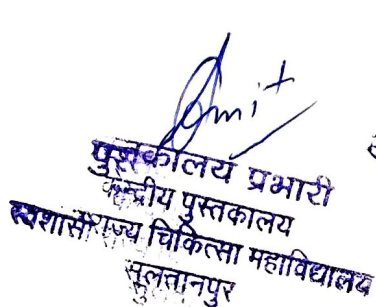 Amit
पुस्तकालय प्रभारी
केन्द्रीय पुस्तकालय
स्वशासी राज्य चिकित्सा महाविद्यालय
सुलतानपुर